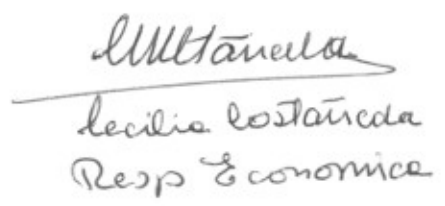 Cecilia Costañeda
Resp Economica